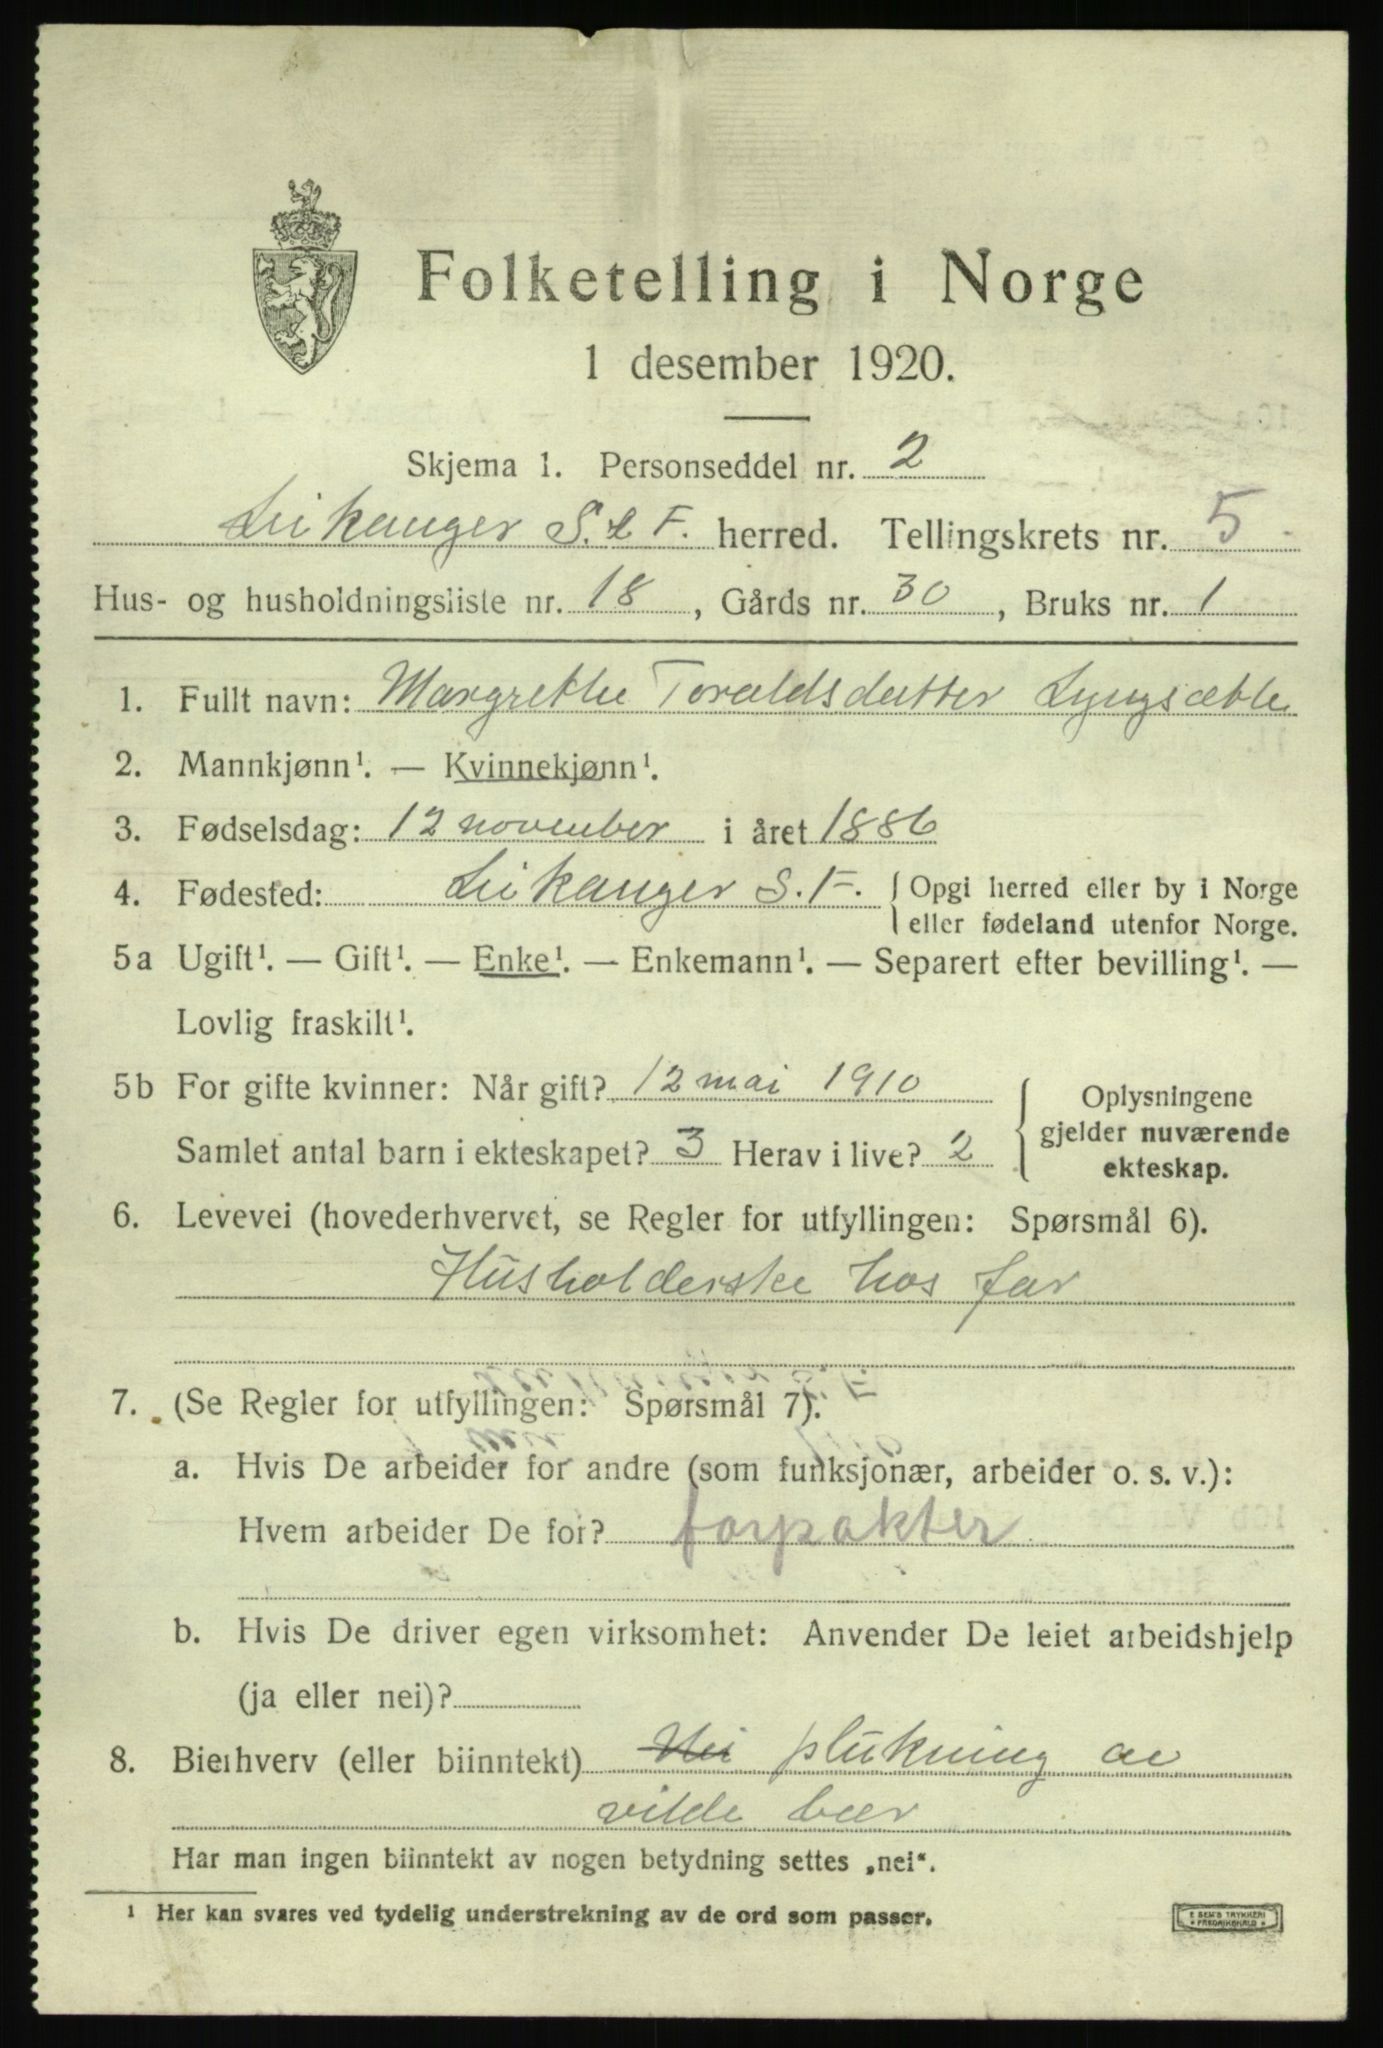 Folketelling i Norge
1 desember 1920.
Skjema 1. Personseddel nr. 2
Leikanger S. & F. herred. Tellingskrets nr. 5
Hus- og husholdningsliste nr. 18, Gårds nr. 30, Bruks nr. 1
1. Fullt navn: Margrethe Toraldsdatter Lyngsæble
2. Mannkjønn¹. — Kvinnekjønn¹.
3. Fødselsdag: 12 november i året 1886
4. Fødested: Leikanger S. F. { Opgi herred eller by i Norge
eller fødeland utenfor Norge.
5a Ugift¹. — Gift¹. — Enke¹. — Enkemann¹. — Separert efter bevilling¹. —
Lovlig fraskilt¹.
5b For gifte kvinner: Når gift? 12 mai 1910
Samlet antal barn i ekteskapet? 3 Herav i live? 2
{ Oplysningene
gjelder nuværende
ekteskap.
6. Levevei (hovederhvervet, se Regler for utfyllingen: Spørsmål 6).
Husholderske hos far
7. (Se Regler for utfyllingen: Spørsmål 7).
a. Hvis De arbeider for andre (som funksjonær, arbeider o. s. v.):
Hvem arbeider De for? forpakter
b. Hvis De driver egen virksomhet: Anvender De leiet arbeidshjelp
(ja eller nei)?
8. Bierhverv (eller biinntekt) Nei plukning av
vilde bær
Har man ingen biinntekt av nogen betydning settes „nei“.
¹ Her kan svares ved tydelig understrekning av de ord som passer.
E SEM'S TRYKKERI
FREDRIKSHALD